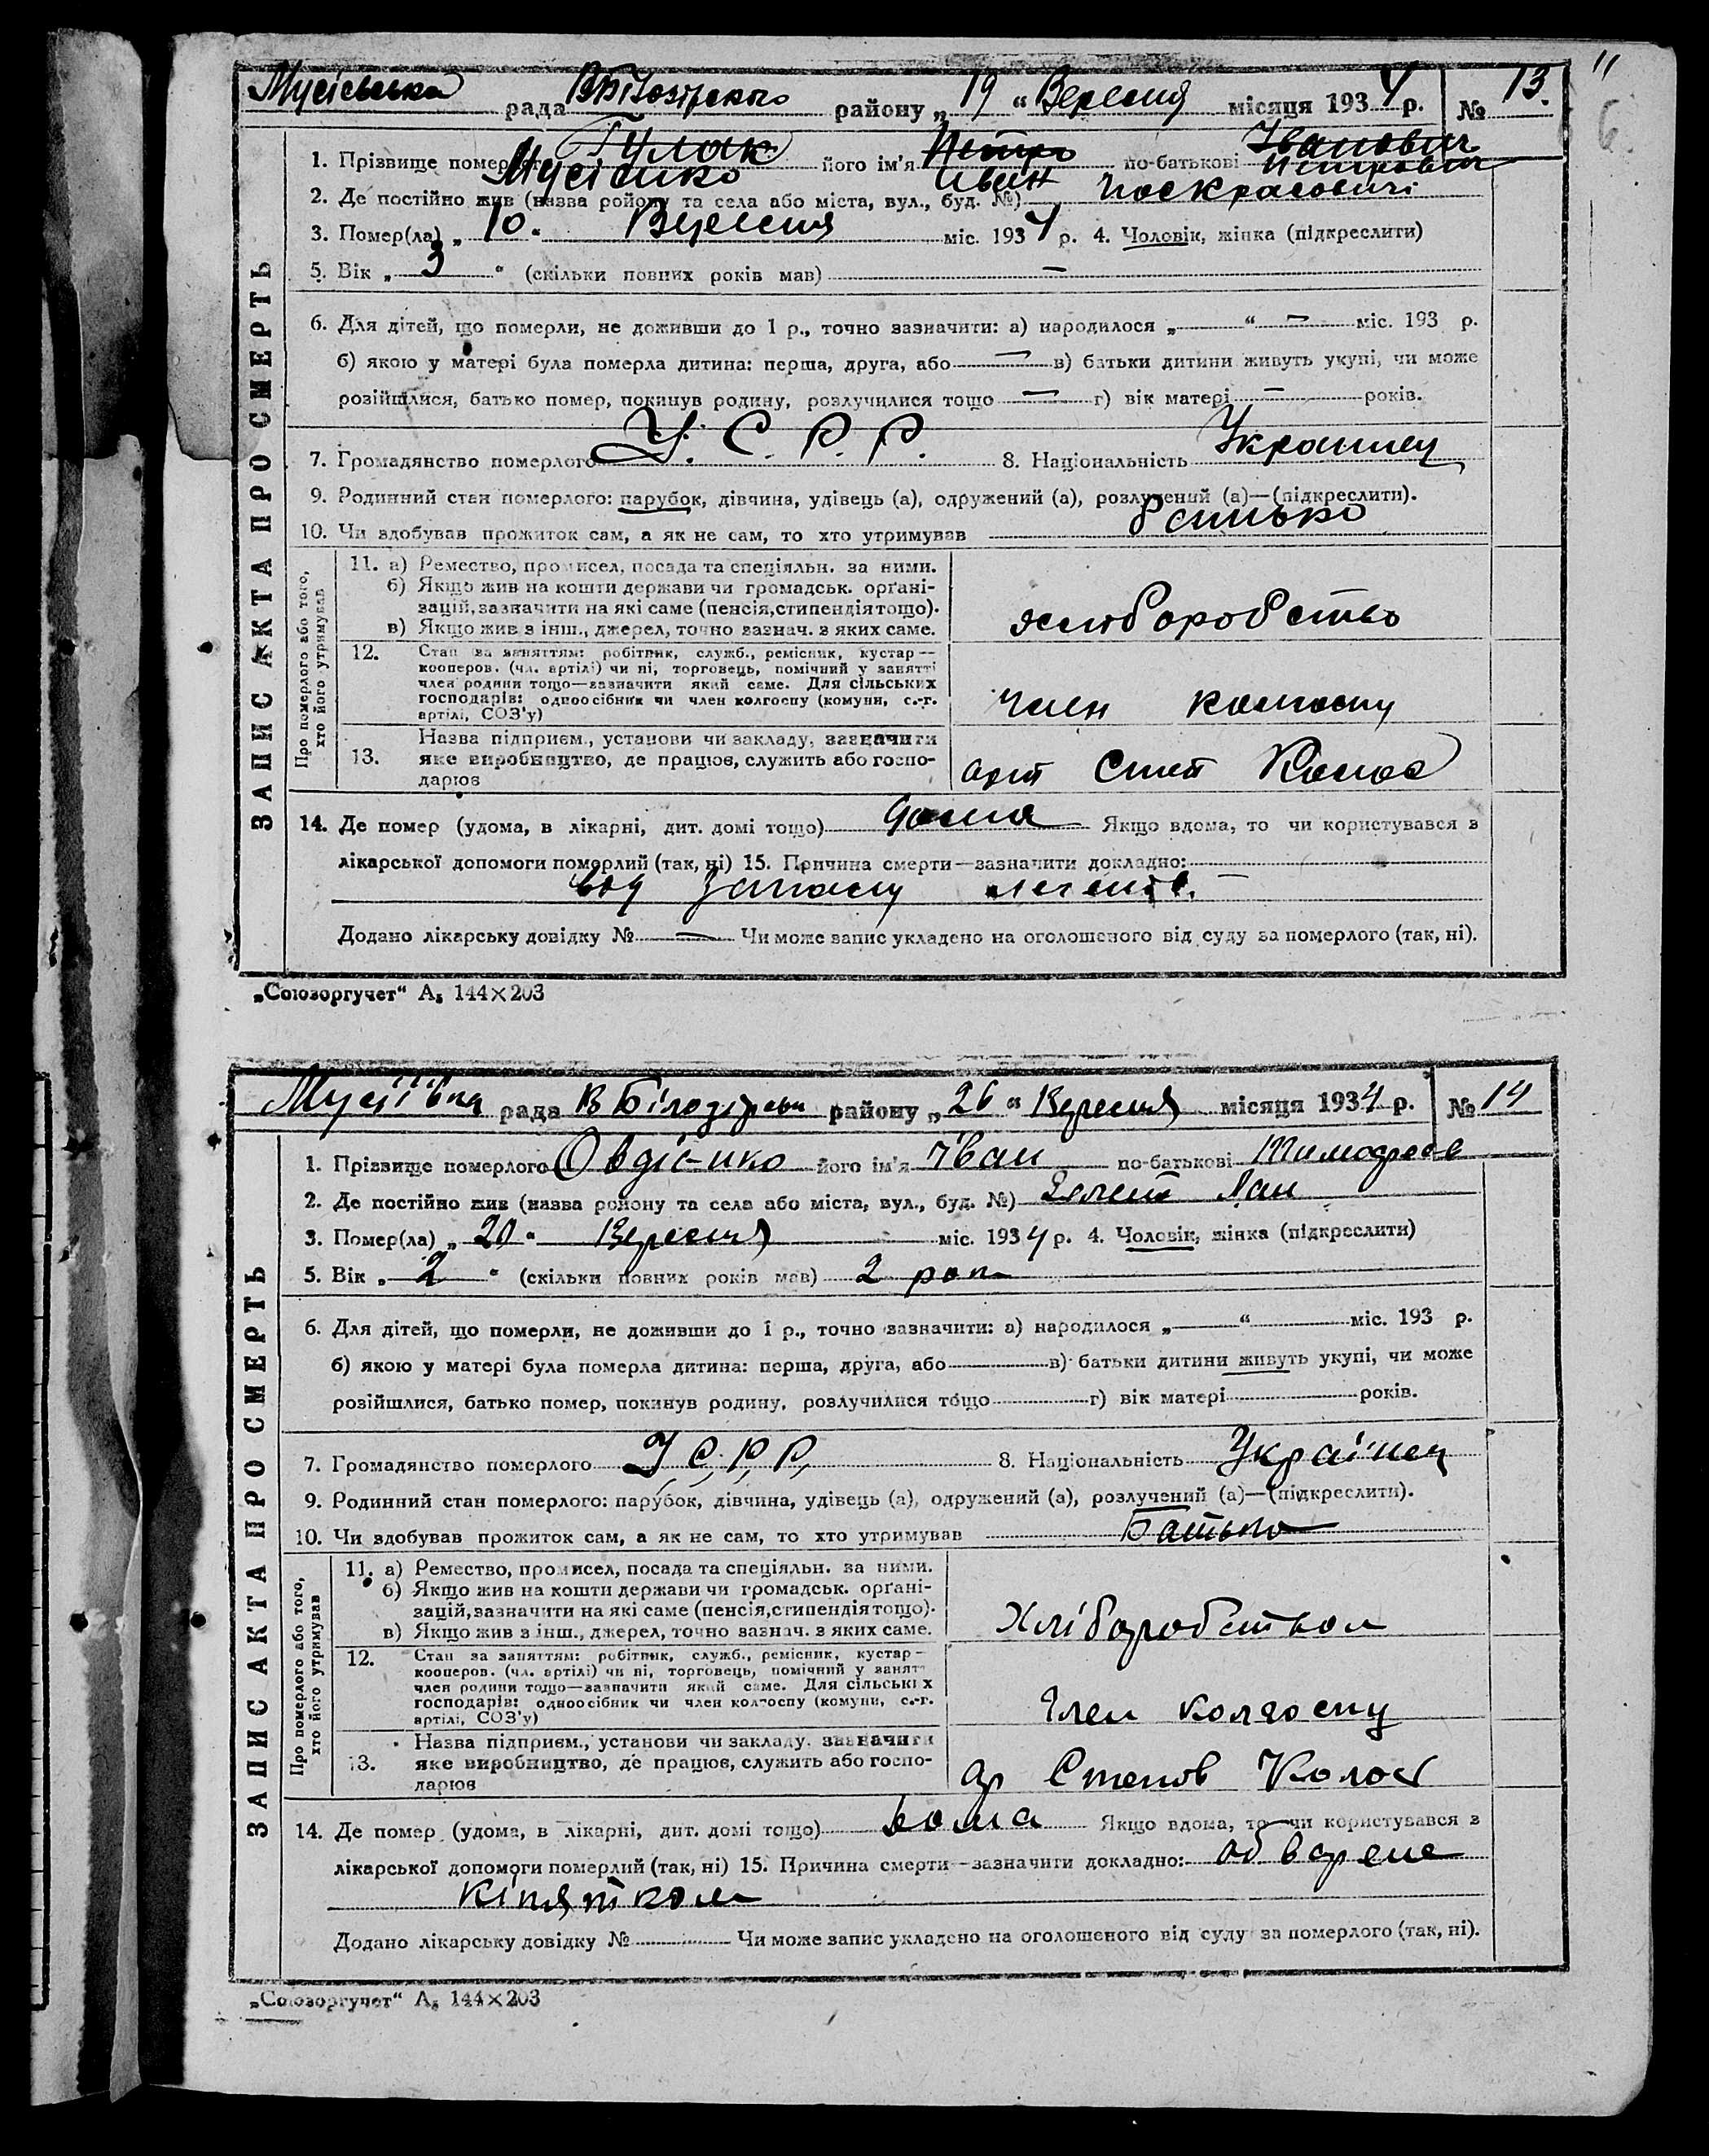 11
6
Мусієвська рада ВБілозірського району „19“ Вересня місяця 1934 р. № 13.
1. Прізвище померлого Гулак його ім'я Петро по-батькові Іванович
Мусієнко Иван Петрович
2. Де постійно жив (назва району та села або міста, вул., буд. №)
3. Помер(ла) „10“ Вересня міс. 1934 р. 4. Чоловік, жінка (підкреслити)
5. Вік „3“ (скільки повних років мав) —
6. Для дітей, що померли, не доживши до 1 р., точно зазначити: а) народилося „ “ — міс. 193 р.
б) якою у матері була померла дитина: перша, друга, або — в) батьки дитини живуть укупі, чи може
розійшлися, батько помер, покинув родину, розлучилися тощо — г) вік матері — років.
7. Громадянство померлого У. С. Р. Р. 8. Національність Украинец
9. Родинний стан померлого: парубок, дівчина, удівець (а), одружений (а), розлучений (а)—(підкреслити).
10. Чи здобував прожиток сам, а як не сам, то хто утримував батько
Про померлого або того, хто його утримував
11. а) Ремество, промисел, посада та спеціяльн. за ними.
б) Якщо жив на кошти держави чи громадськ. органі-
зацій, зазначити на які саме (пенсія, стипендія тощо).
в) Якщо жив з інш., джерел, точно зазнач. з яких саме.
хліборобство
12. Стан за заняттям: робітник, служб., ремісник, кустар—
кооперов. (чл. артілі) чи ні, торговець, помічний у занятті
член родини тощо—зазначити який саме. Для сільських
господарів: одноосібник чи член колгоспу (комуни, с.-г.
артілі, СОЗ'у)
член колгоспу
13. Назва підприєм., установи чи закладу, зазначити
яке виробництво, де працює, служить або госпо-
дарює
арт Степ Колос
14. Де помер (удома, в лікарні, дит. домі тощо) дома Якщо вдома, то чи користувався з
лікарської допомоги померлий (так, ні) 15. Причина смерти—зазначити докладно:
від запалу легенів.
Додано лікарську довідку № — Чи може запис укладено на оголошеного від суду за померлого (так, ні).
ЗАПИС АКТА ПРО СМЕРТЬ
„Союзоргучет“ А₅ 144×203
Мусіївка рада ВБілозірськи району „26“ Вересня місяця 1934 р. № 14
1. Прізвище померлого Овдієнко його ім'я Іван по-батькові Тимофеев
2. Де постійно жив (назва району та села або міста, вул., буд. №) Зелений Лан
3. Помер(ла) „20“ Вересня міс. 1934 р. 4. Чоловік, жінка (підкреслити)
5. Вік „2“ (скільки повних років мав) 2 роки
6. Для дітей, що померли, не доживши до 1 р., точно зазначити: а) народилося „ “ міс. 193 р.
б) якою у матері була померла дитина: перша, друга, або в) батьки дитини живуть укупі, чи може
розійшлися, батько помер, покинув родину, розлучилися тощо г) вік матері років.
7. Громадянство померлого У, С, Р, Р, 8. Національність Українец
9. Родинний стан померлого: парубок, дівчина, удівець (а), одружений (а), розлучений (а)—(підкреслити).
10. Чи здобував прожиток сам, а як не сам, то хто утримував Батько
Про померлого або того, хто його утримував
11. а) Ремество, промисел, посада та спеціяльн. за ними.
б) Якщо жив на кошти держави чи громадськ. органі-
зацій, зазначити на які саме (пенсія, стипендія тощо).
в) Якщо жив з інш., джерел, точно зазнач. з яких саме.
Хліборобством
12. Стан за заняттям: робітник, служб., ремісник, кустар—
кооперов. (чл. артілі) чи ні, торговець, помічний у занятт
член родини тощо—зазначити який саме. Для сільських
господарів: одноосібник чи член колгоспу (комуни, с.-г.
артілі, СОЗ'у)
Член колгоспу
13. Назва підприєм., установи чи закладу, зазначити
яке виробництво, де працює, служить або госпо-
дарює
ар Степов Колос
14. Де помер (удома, в лікарні, дит. домі тощо) Дома Якщо вдома, то чи користувався з
лікарської допомоги померлий (так, ні) 15. Причина смерти—зазначити докладно: обварене
кіпятком
Додано лікарську довідку № Чи може запис укладено на оголошеного від суду за померлого (так, ні).
ЗАПИС АКТА ПРО СМЕРТЬ
„Союзоргучет“ А₅ 144×203